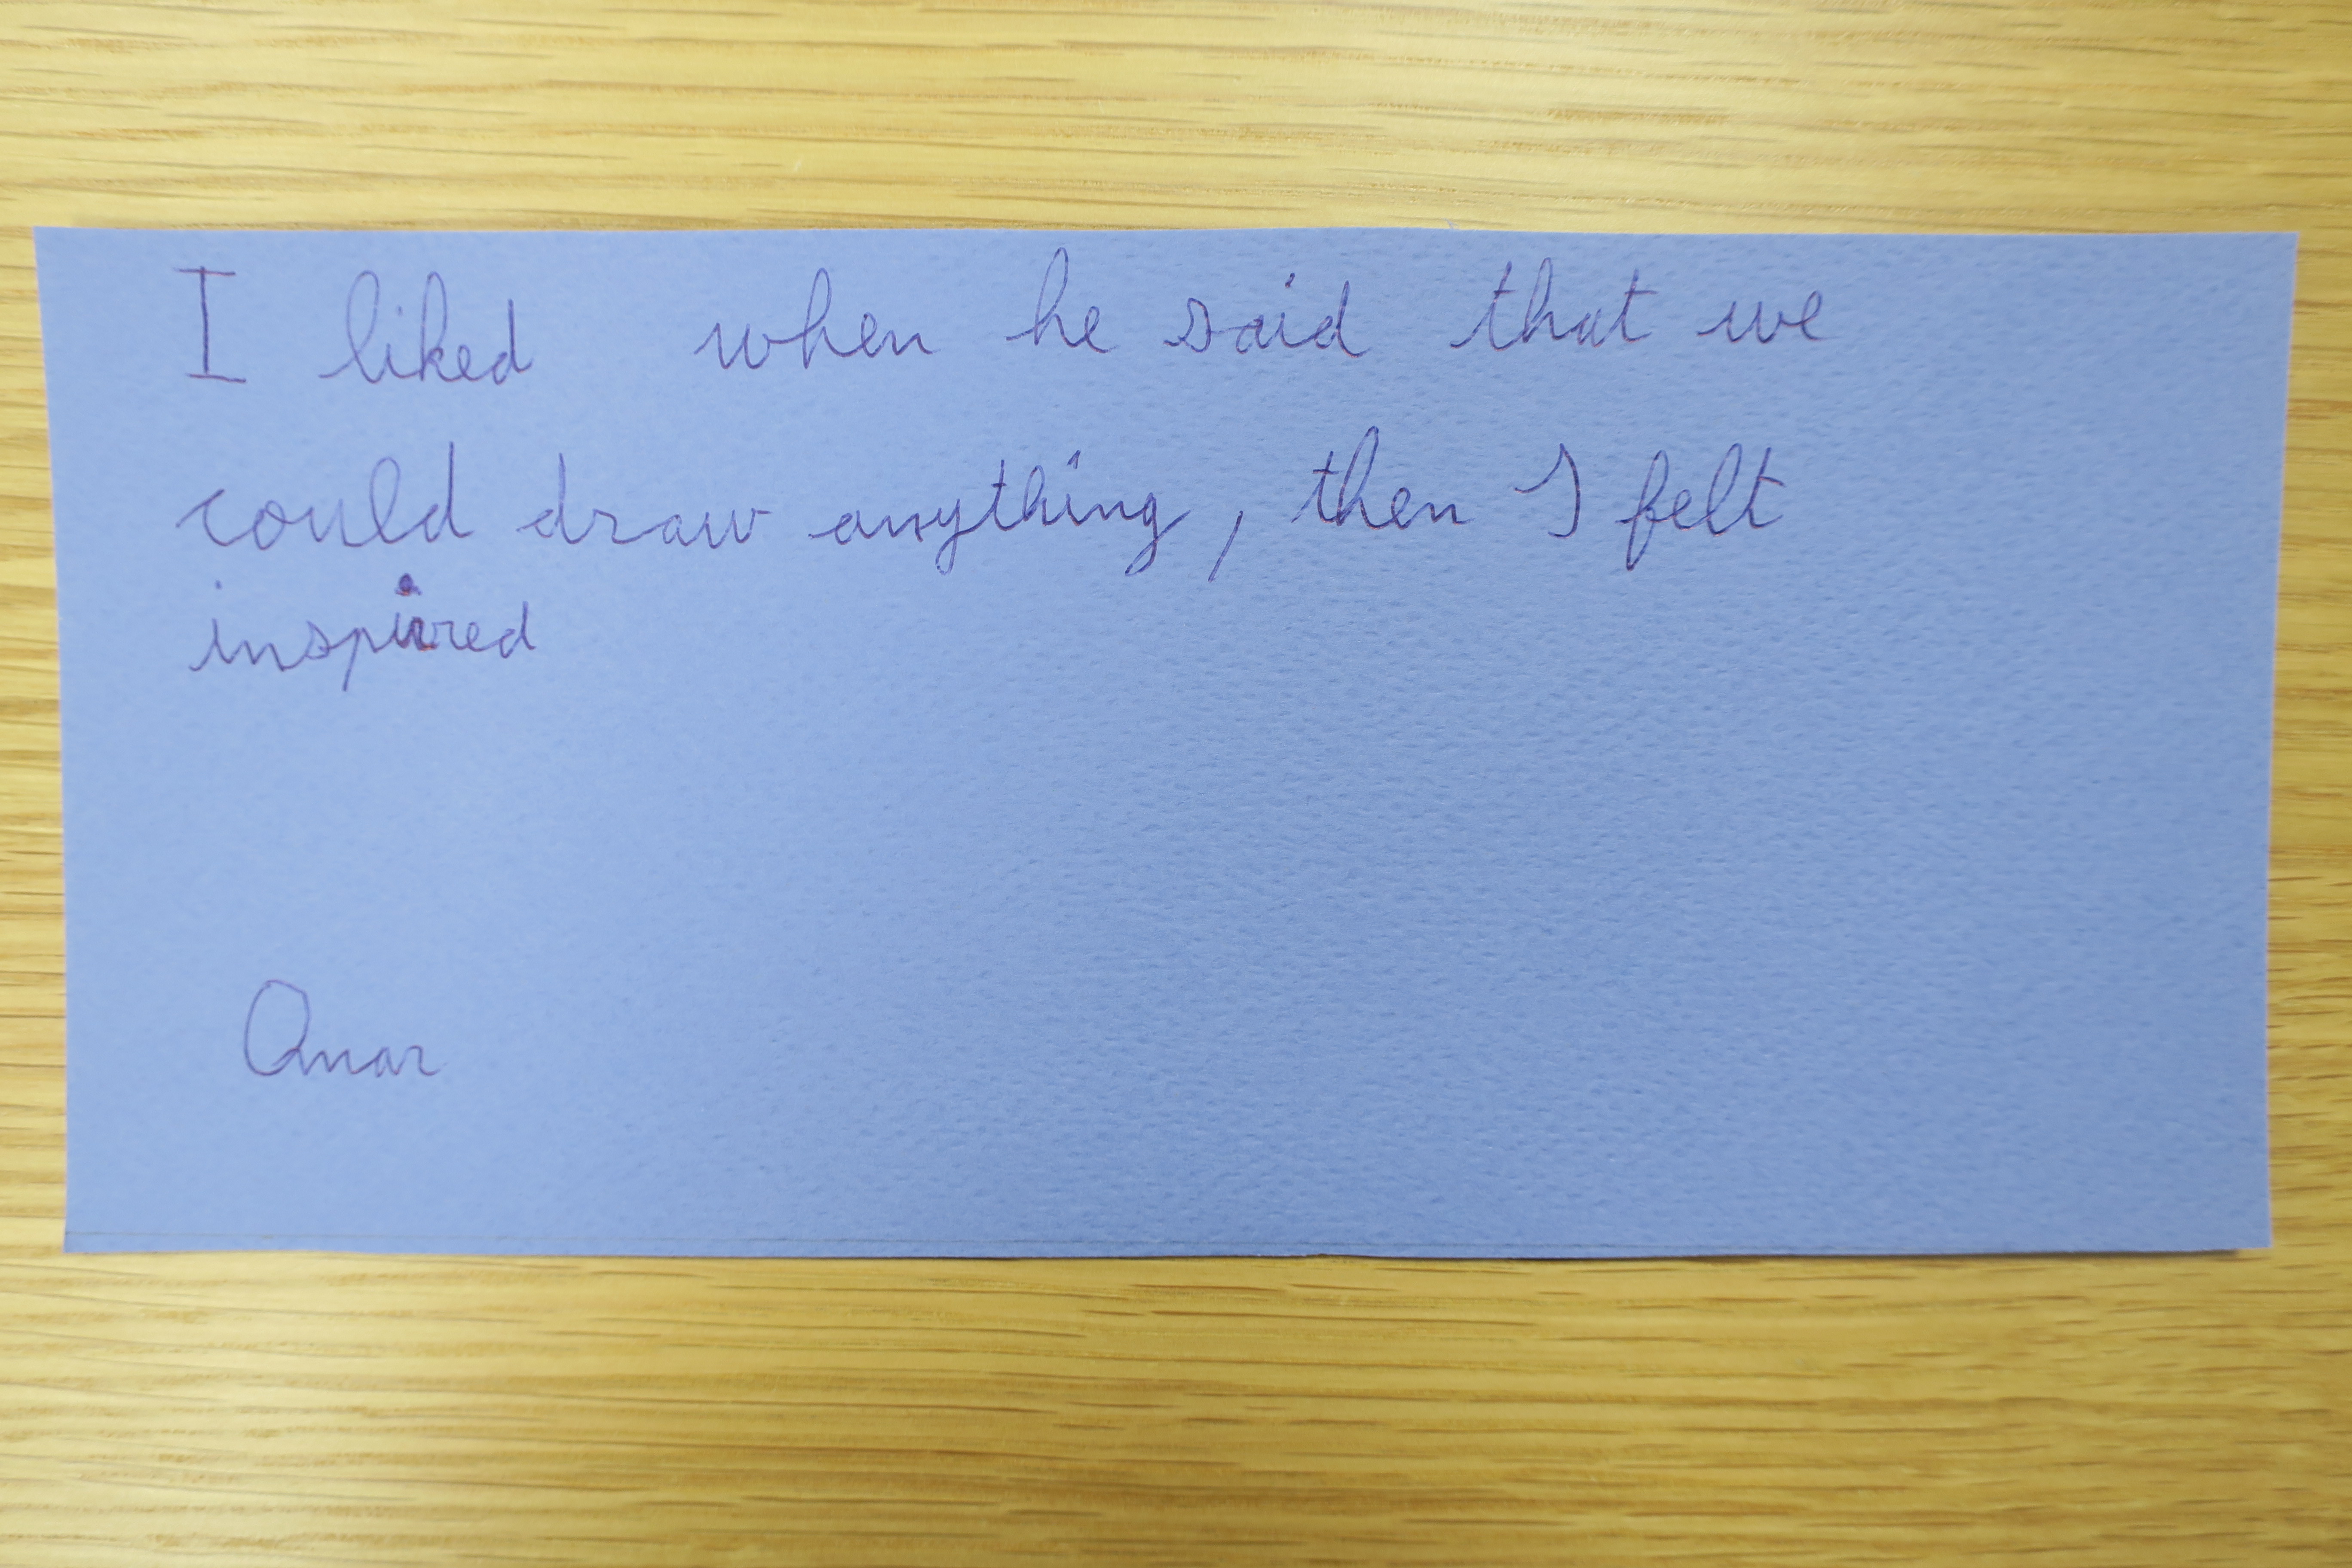 I liked when he said that we
could draw anything, then I felt
inspired
Omar